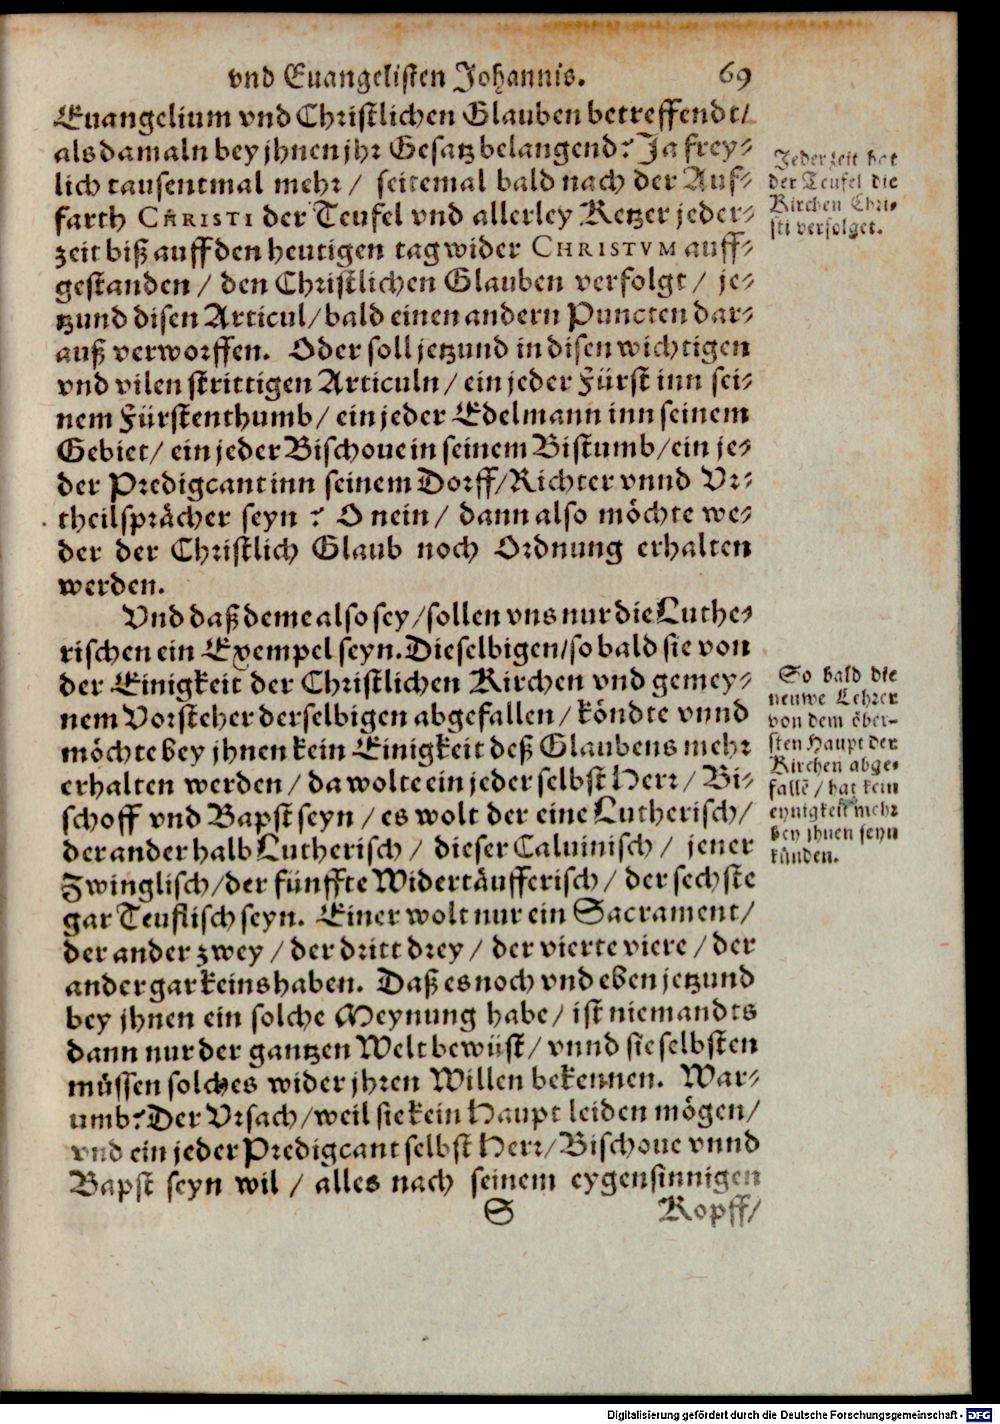 vnd Euangelisten Johannis. 69
Euangelium vnd Christlichen Glauben betreffendt/
als damaln bey jhnen jhr Gesatz belangend? Ja frey-
lich tausentmal mehr / seitemal bald nach der Auf-
farth CHRISTI der Teufel vnd allerley Ketzer jeder-
zeit biß auff den heutigen tag wider CHRISTVM auff-
gestanden / den Christlichen Glauben verfolgt / je-
tzund disen Articul/ bald einen andern Puncten dar-
auß verworffen. Oder soll jetzund in disen wichtigen
vnd vilen strittigen Articuln / ein jeder Fürst inn sei-
nem Fürstenthumb/ ein jeder Edelmann inn seinem
Gebiet/ ein jeder Bischoue in seinem Bistumb/ein je-
der Predigcant inn seinem Dorff/Richter vnnd Vr-
theilsprächer seyn ? O nein/ dann also möchte we-
der der Christlich Glaub noch Ordnung erhalten
werden.
Vnd daß deme also sey/sollen vns nur die Luthe-
rischen ein Exempel seyn. Dieselbigen/so bald sie von
der Einigkeit der Christlichen Kirchen vnd gemey-
nem Vorsteher derselbigen abgefallen / köndte vnnd
möchte bey jhnen kein Einigkeit deß Glaubens mehr
erhalten werden / da wolte ein jeder selbst Herr/ Bi-
schoff vnd Bapst seyn / es wolt der eine Lutherisch/
der ander halb Lutherisch / dieser Caluinisch / jener
Zwinglisch/der fünffte Widertäufferisch/ der sechste
gar Teuflisch seyn. Einer wolt nur ein Sacrament/
der ander zwey / der dritt drey / der vierte viere / der
ander gar keins haben. Daß es noch vnd eben jetzund
bey jhnen ein solche Meynung habe/ ist niemandts
dann nur der gantzen Welt bewüst/ vnnd sie selbsten
müssen solches wider jhren Willen bekennen. War-
umb? Der Vrsach/weil sie kein Haupt leiden mögen/
vnd ein jeder Predigcant selbst Herr/Bischoue vnnd
Bapst seyn wil / alles nach seinem eygensinnigen
S Kopff/
Jederzeit hat
der Teufel die
Kirchen Chri-
sti verfolget.
So bald die
neuwe Lehrer
von dem öber-
sten Haupt der
Kirchen abge-
fallẽ / hat kein
eynigkeit mehr
bey jhnen seyn
künden.
Digitalisierung gefördert durch die Deutsche Forschungsgemeinschaft - DFG